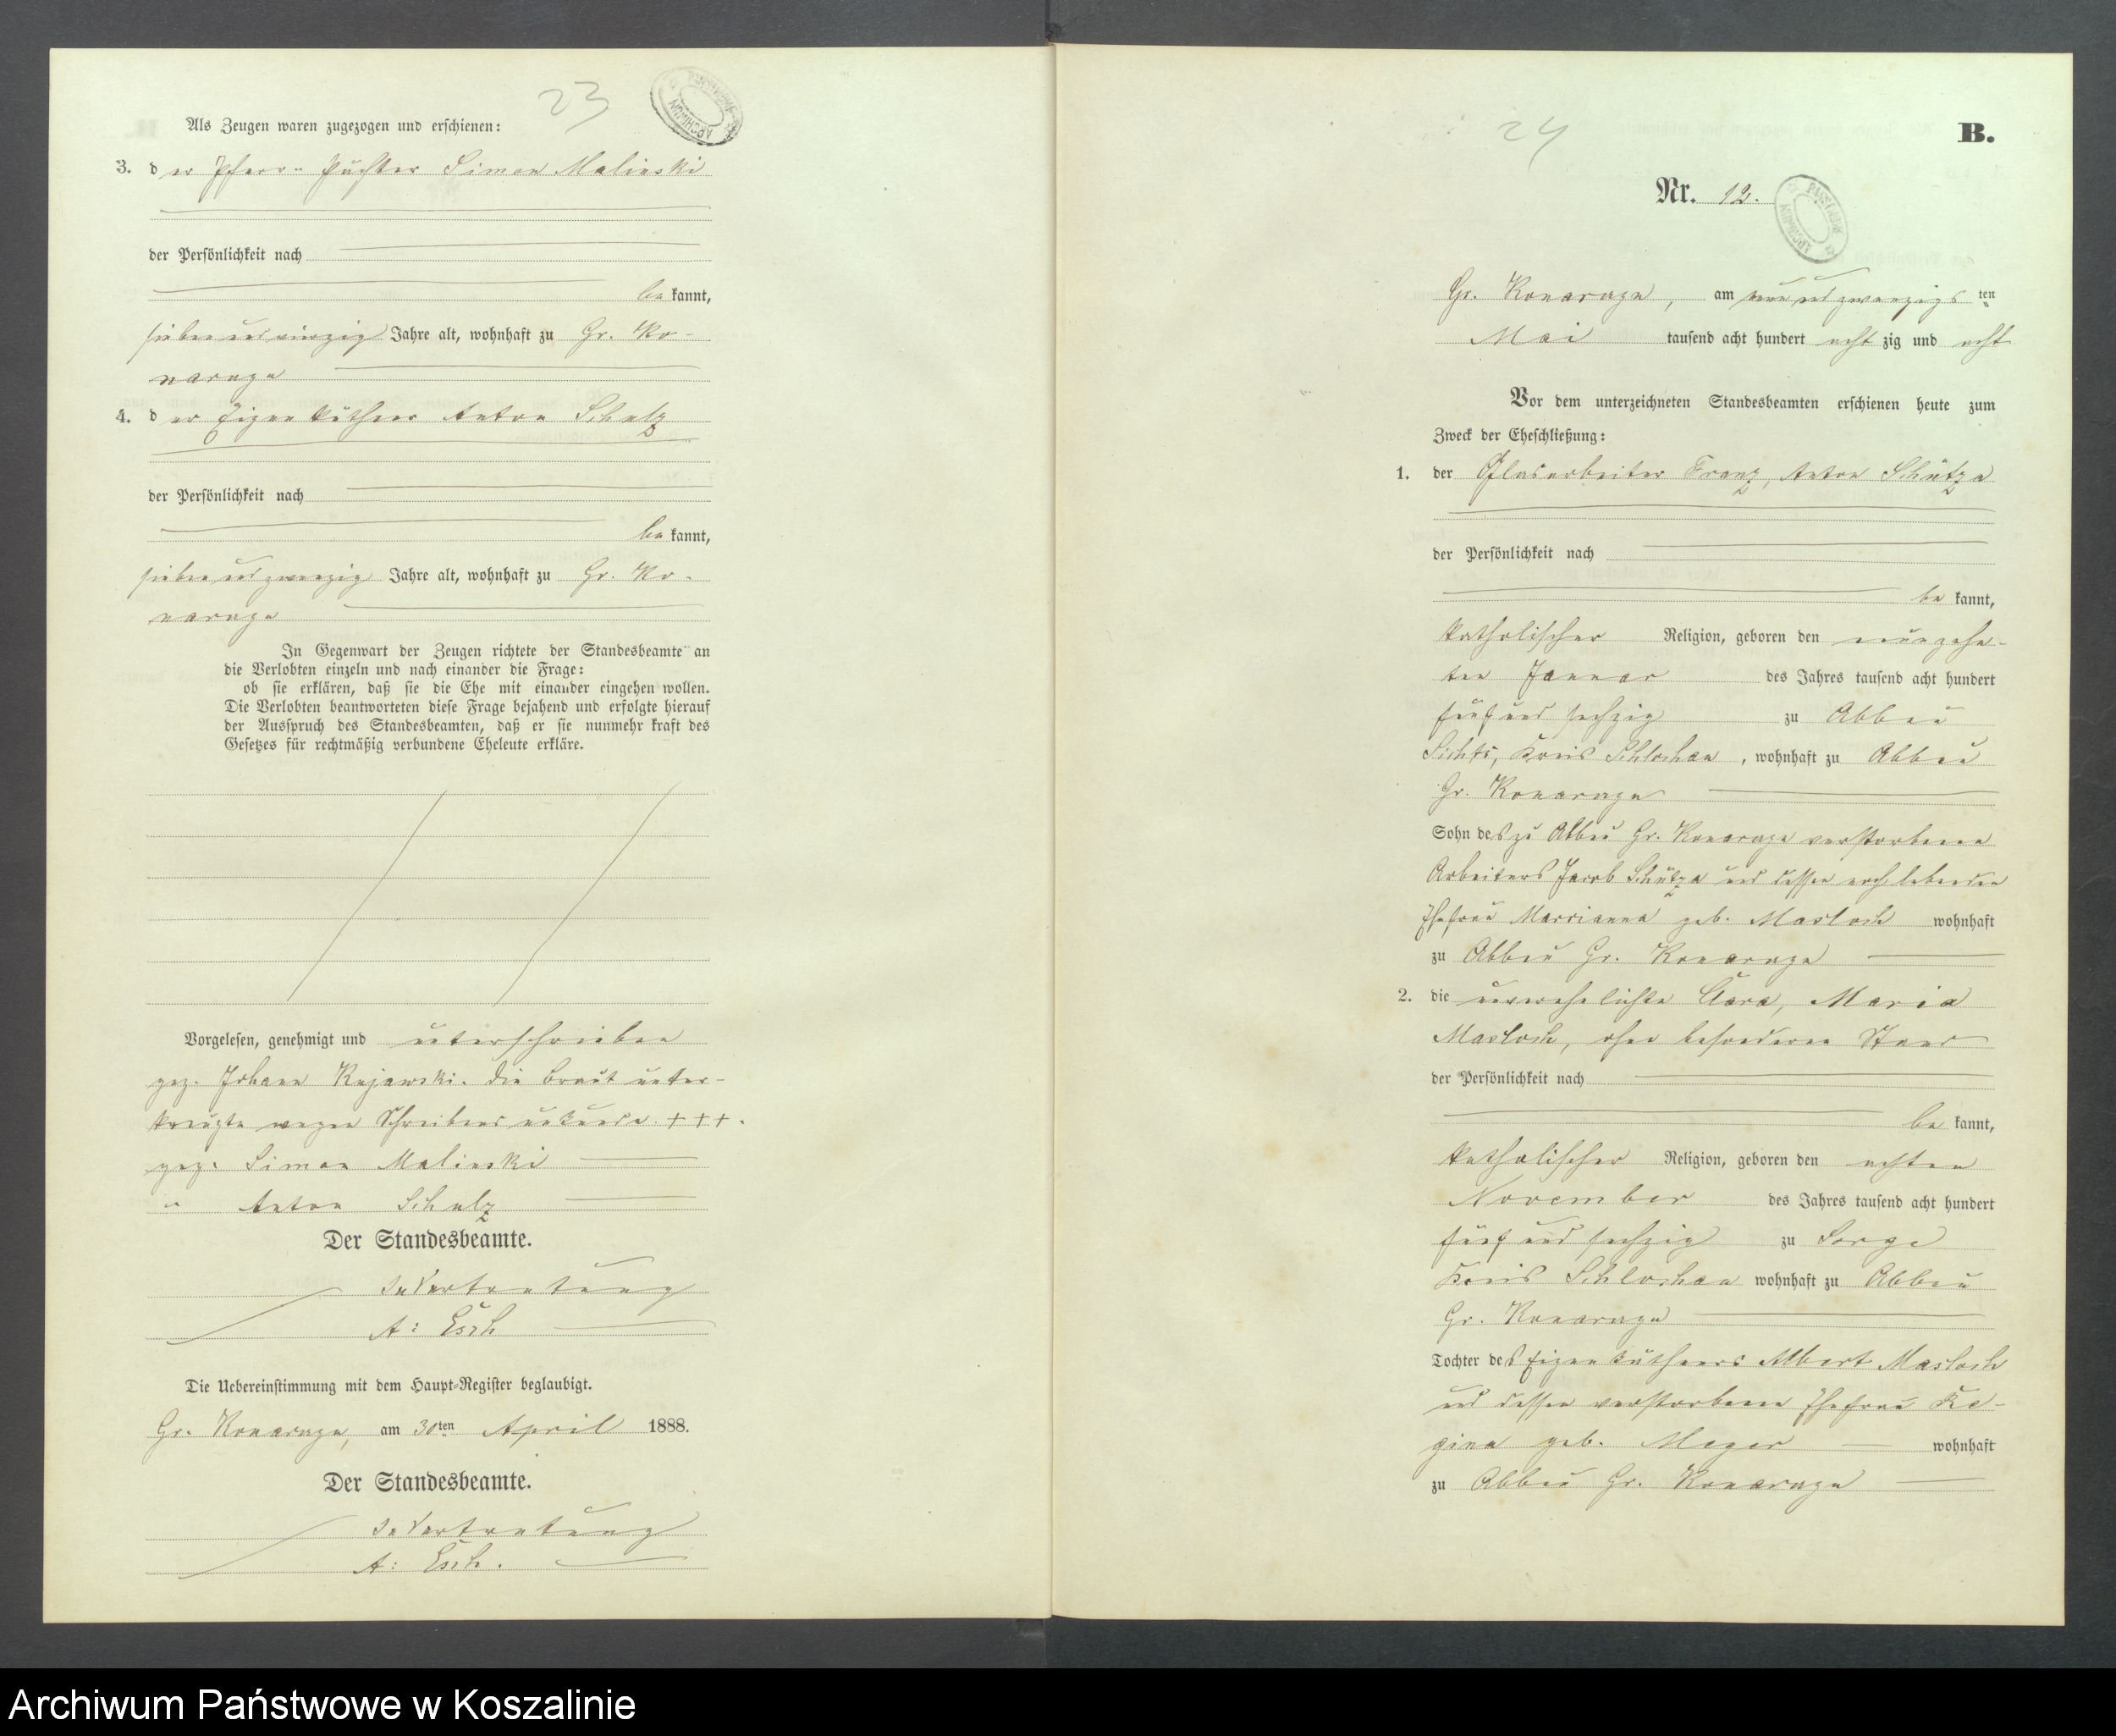 23
Als Zeugen waren zugezogen und erschienen:
3. der Pfarr- Pächter Simon Malinski
der Persönlichkeit nach
be kannt,
sieben und vierzig Jahre alt, wohnhaft zu Gr. Ko-
narzyn
4. der Eigenkäthner Anton Schulz
der Persönlichkeit nach
be kannt,
sieben und zwanzig Jahre alt, wohnhaft zu Gr. Ko-
narzyn
In Gegenwart der Zeugen richtete der Standesbeamte an
die Verlobten einzeln und nach einander die Frage:
ob sie erklären, daß sie die Ehe mit einander eingehen wollen.
Die Verlobten beantworteten diese Frage bejahend und erfolgte hierauf
der Ausspruch des Standesbeamten, daß er sie nunmehr kraft des
Gesetzes für rechtmäßig verbundene Eheleute erkläre.
Vorgelesen, genehmigt und unterschrieben
gez. Johann Kujawski. die Braut unter-
kreuzte wegen Schreibens unkunde. +++.
gez. Simon Malinski
" Anton Schulz
Der Standesbeamte.
In Vertretung
A: Esch
Die Uebereinstimmung mit dem Haupt-Register beglaubigt.
Gr. Konarzyn, am 30ten April 1888.
Der Standesbeamte.
In Vertretung
A: Esch.
24
B.
Nr. 12.
Gr. Konarzyn, am neun und zwanzigs ten
Mai tausend acht hundert acht zig und acht
Vor dem unterzeichneten Standesbeamten erschienen heute zum
Zweck der Eheschließung:
1. der Glasarbeiter Franz, Anton Schütza
der Persönlichkeit nach
be kannt,
katholischer Religion, geboren den neunzehn-
ten Januar des Jahres tausend acht hundert
fünf und sechzig zu Abbau
Sichts, Kreis Schlochau, wohnhaft zu Abbau
Gr. Konarzyn
Sohn des zu Abbau Gr. Konarzyn verstorbenen
Arbeiters Jacob Schütza und dessen noch lebenden
Ehefrau Marrianna geb. Masloch wohnhaft
zu Abbau Gr. Konarzyn
2. die unverehelichte Clara, Maria
Masloch, ohne besonderen Stand
der Persönlichkeit nach
be kannt,
katholischer Religion, geboren den achten
November des Jahres tausend acht hundert
fünf und sechzig zu Sorge
Kreis Schlochau wohnhaft zu Abbau
Gr. Konarzyn
Tochter des Eigenkäthners Albert Masloch
und dessen verstorbenen Ehefrau Re-
gina geb. Meger wohnhaft
zu Abbau Gr. Konarzyn
Archiwum Państwowe w Koszalinie